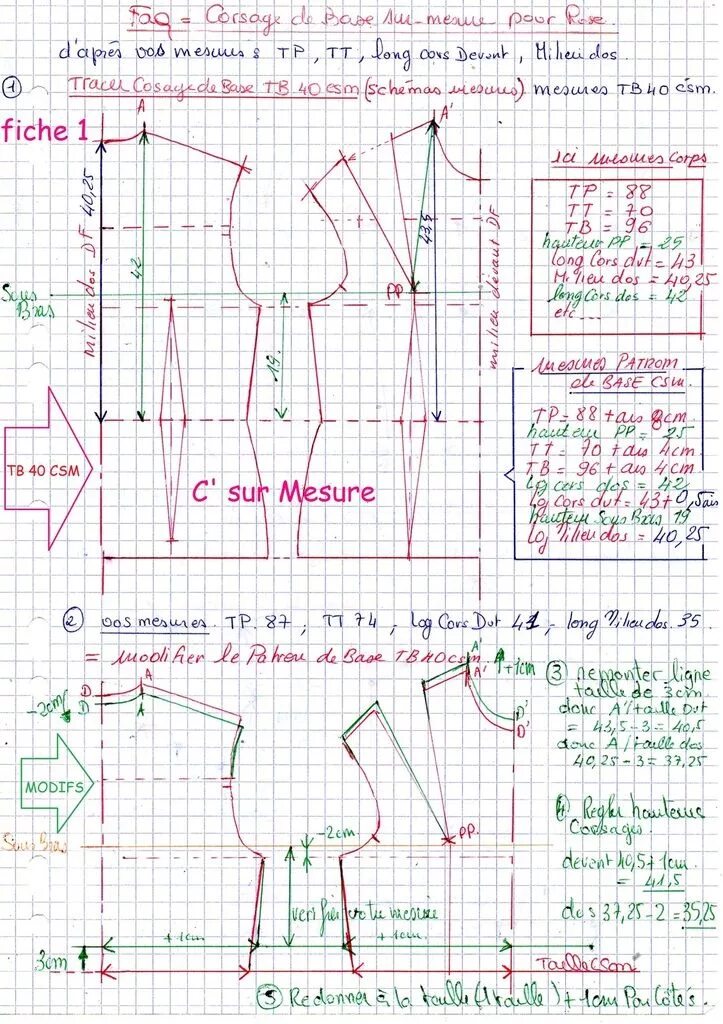 FaQ = Corsage de Base sur-mesure pour Rose.
d'après vos mesures TP, TT, long cors Devant, Milieu dos.
① Tracer Cosage de Base TB 40 csm (schémas mesures) mesures TB 40 csm.
fiche 1
A
A'
milieu dos DF 40,25
42
19
43,5
PP
milieu devant DF
Sous Bras
TB 40 CSM
C' sur Mesure
ici mesures corps
TP = 88
TT = 70
TB = 96
hauteur PP = 25
long Cors dvt = 43
Milieu dos = 40,25
long Cors dos = 42
etc...
mesures PATRON
de BASE CSM.
TP = 88 + ais 8cm
hauteur PP = 25
TT = 70 + ais 4cm
TB = 96 + ais 4cm
Lg cors dos = 42
Lg Cors dvt = 43 + 0,5 ais
hauteur Sous Bras 19
Lg Milieu dos = 40,25
② vos mesures. TP. 87, TT 74, Log Cors Dvt 41, long Milieu dos. 35
= modifier le Patron de Base TB 40 csm.
-2cm
D
D
A
A
A'
A'
+1cm
D'
D'
MODIFS
Sous Bras
-2cm
PP.
verifier votre mesure
+1cm
+1cm
3cm
Taille CSM
③ remonter ligne
taille de 3cm.
donc A'/taille Dvt
= 43,5 - 3 = 40,5
donc A/taille dos
40,25 - 3 = 37,25
④ Regler hauteurs
Corsages.
devant 40,5 + 1cm
= 41,5
dos 37,25 - 2 = 35,25
⑤ Redonner à la taille (1 taille) + 1cm Par Côtés.